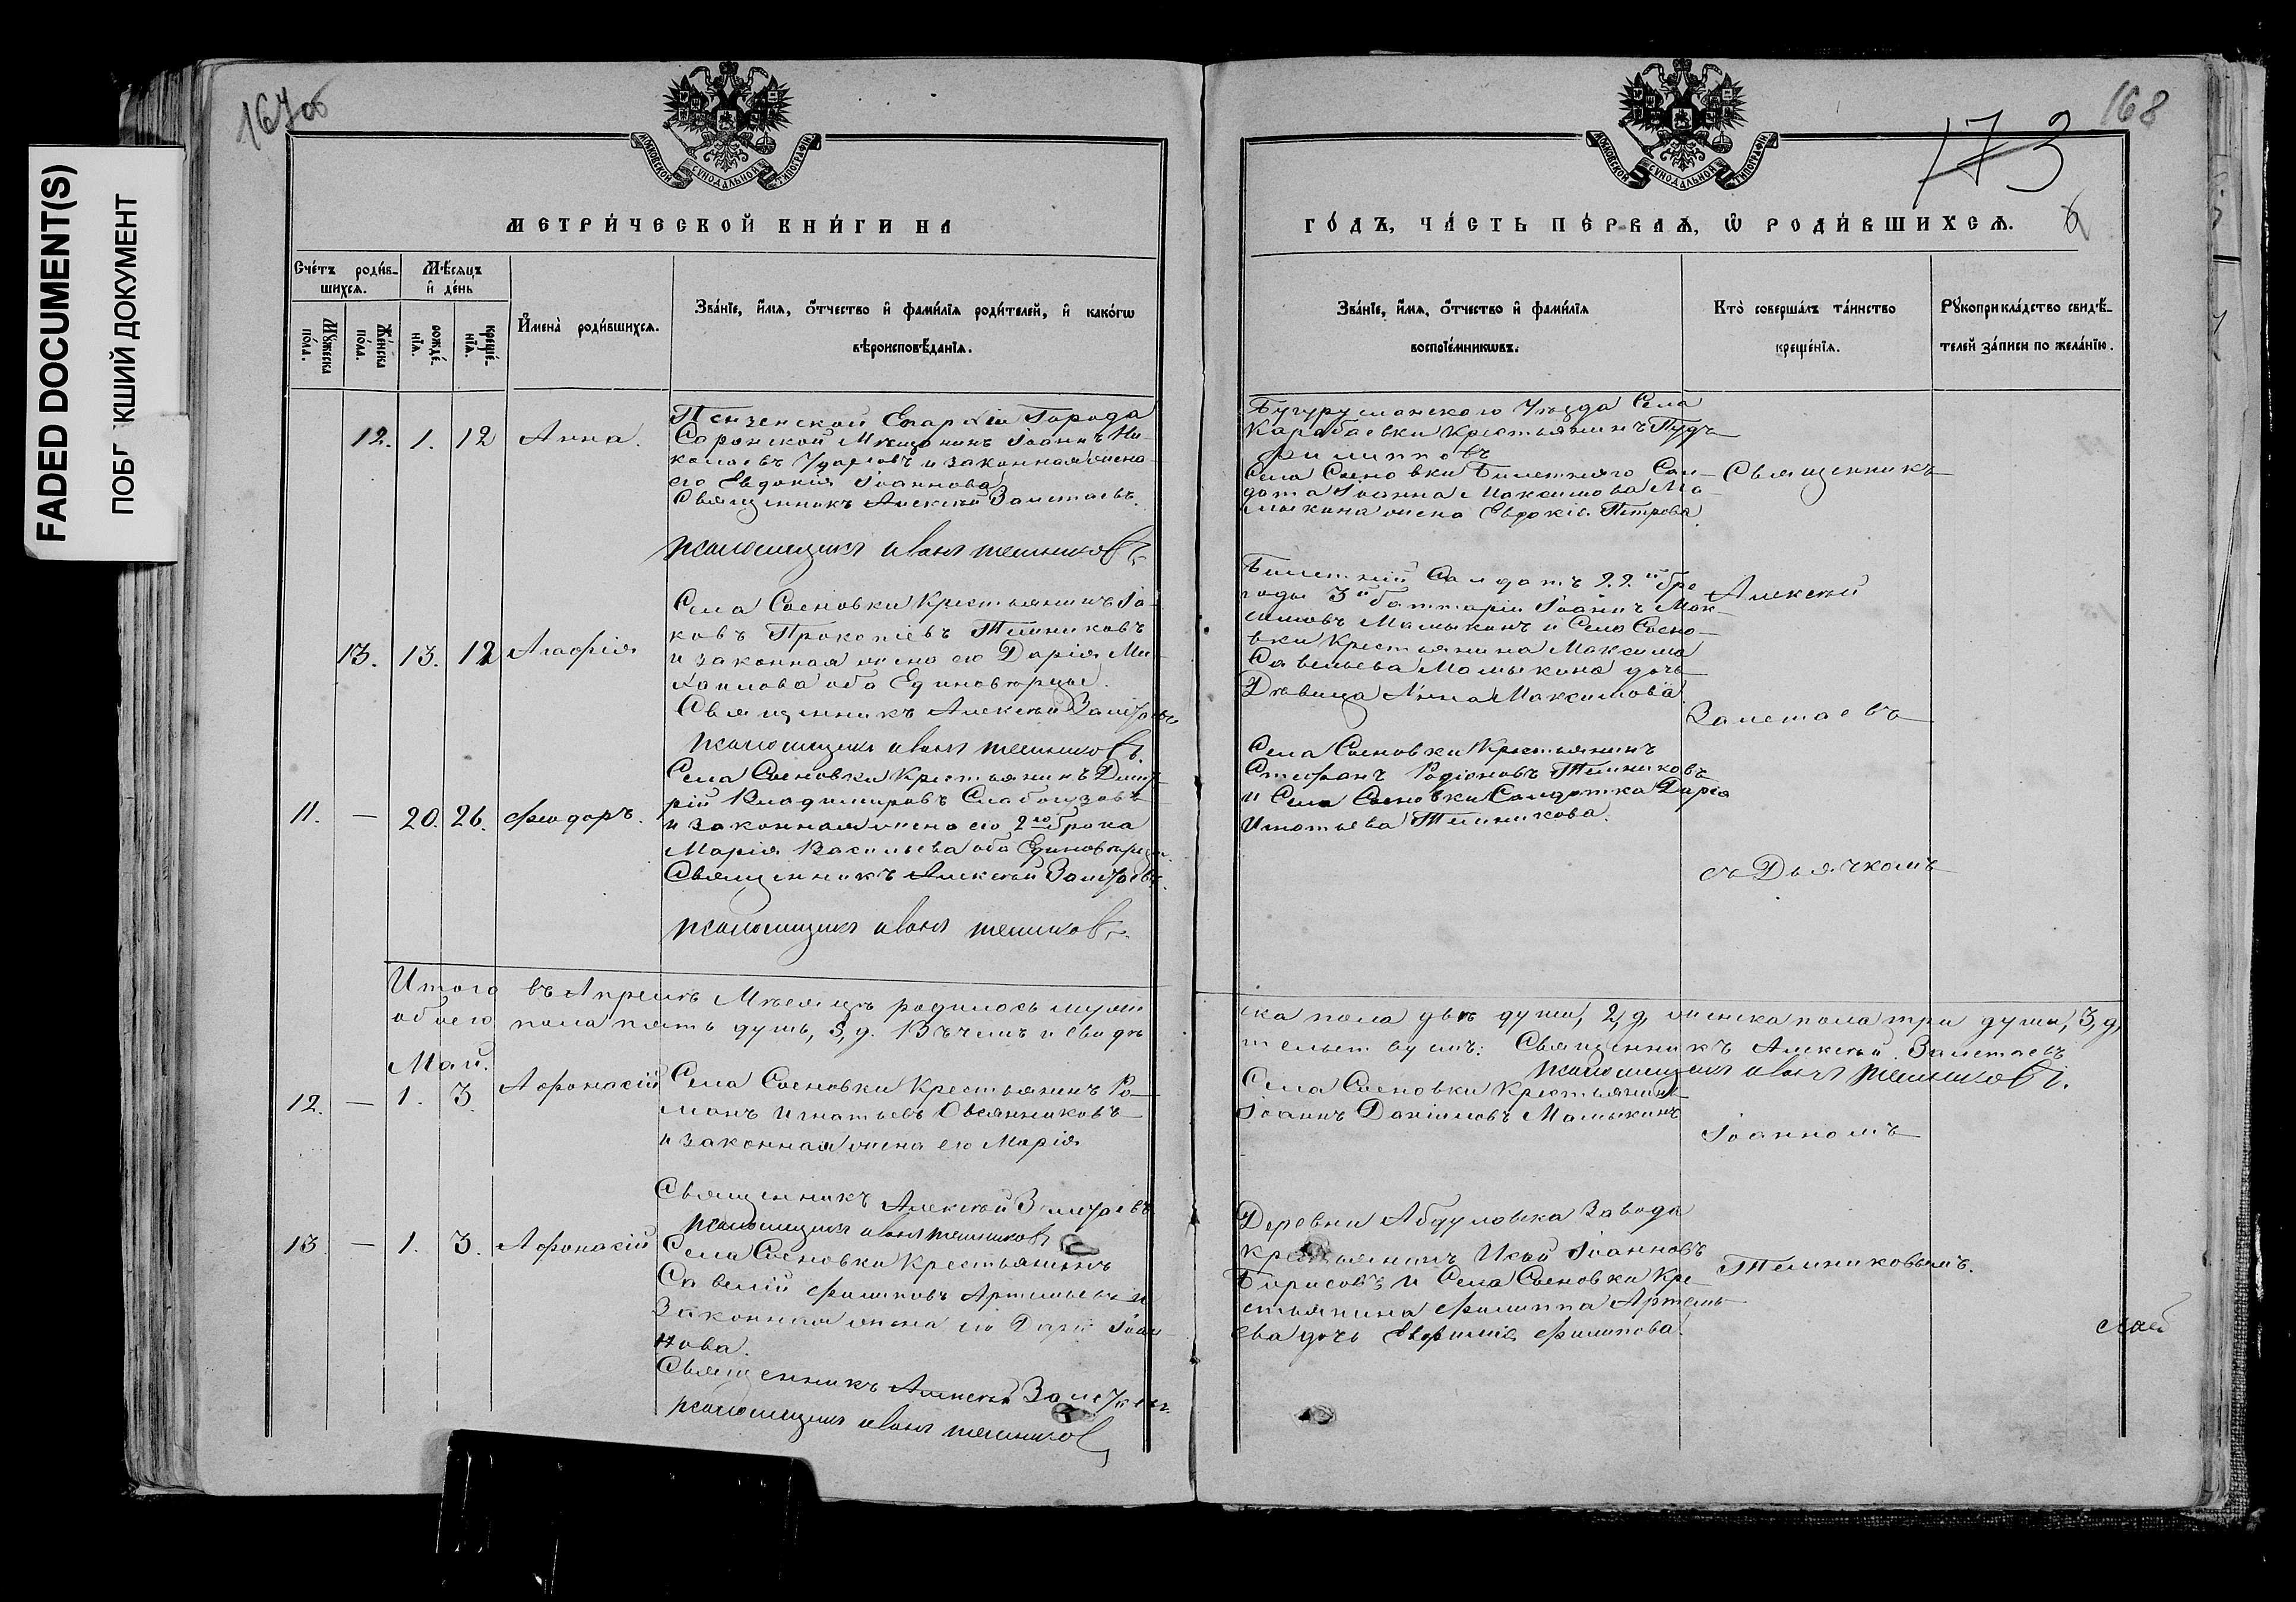 FADED DOCUMENT(S)
ПОБГ КШИЙ ДОКУМЕНТ
167об
МОСКОВСКОЙ СѴНОДАЛЬНОЙ ТИПОГРАФІИ
МЕТРИ́ЧЕСКОЙ КНИ́ГИ НА
Сче́тъ роди́в-
шихсѧ.
Мѣ́сяцъ
и҆ де́нь
Мꙋжеска
по́ла.
Же́нска
по́ла.
рожде́-
нїѧ.
креще́-
нїѧ.
И҆мена̀ роди́вшихсѧ.
Зва́нїе, и҆́мя, ѻ҆́тчество и҆ фами́лїѧ роди́телей, и҆ како́гѡ
вѣроисповѣ́данїѧ.
12. 1. 12 Анна.
Пензенской Епархіи Города
Саронской Мещанинъ Іоаннъ Ни-
колаевъ Ударовъ и законная жена
его Евдокія Іоаннова
Священникъ Алексѣй Залетаевъ.
псаломщикъ иванъ темниковъ
13. 13. 12 Агафія
Села Сосновки Крестьянинъ Іа-
ковъ Прокопіевъ Темниковъ
и законная жена его Дарія Ми-
хаилова оба Единовѣрцы.
Священникъ Алексѣй Залетаевъ
псаломщикъ иванъ темниковъ.
11. — 20. 26. Феодоръ.
Села Сосновки Крестьянинъ Димит-
рій Владимировъ Слабогузовъ
и законная жена его 2го брака
Марія Васильева оба Единовѣрцы.
Священникъ Алексѣй Залетаевъ.
псаломщикъ иванъ темниковъ.
Итого въ Апрелѣ Мѣсяцѣ родилось муже
обоего пола пять душъ, 5, д. Въ чемъ и свидѣ
Май.
12. — 1. 3. Афонасій
Села Сосновки Крестьянинъ Ро-
манъ Игнатьевъ Овсянниковъ
и законная жена его Марія
Священникъ Алексѣй Залетаевъ
псаломщикъ иванъ темниковъ
13. — 1. 3. Афонасій
Села Сосновки Крестьянинъ
Савелій Филиповъ Артемьевъ и
законная жена его Дарія Іоан-
нова.
Священникъ Алексѣй Залетаевъ.
псаломщикъ иванъ темниковъ
168
173
МОСКОВСКОЙ СѴНОДАЛЬНОЙ ТИПОГРАФІИ
ГО́ДЪ, ЧА́СТЬ ПЕ́РВАѦ, Ѡ҆ РОДИ́ВШИХСѦ.
Зва́нїе, и҆́мя, ѻ҆́тчество и҆ фами́лїѧ
воспрїе́мникѡвъ.
Кто̀ соверша́лъ та́инство
креще́нїѧ.
Рꙋкоприкла́дство свидѣ́-
телей за́писи по жела́нїю.
Бугурусланскаго Уѣзда Села
Карабаевки Крестьянинъ Пудъ
Филипповъ
Села Сосновки Билетнаго Сол-
дата Іоанна Максимова Ма-
мыкина жена Евдокія Петрова.
Священникъ
Билетній Солдатъ 22й бри
гады 3й баттаріи Іоаннъ Мак-
симовъ Мамыкинъ и Села Сосно-
вки Крестьянина Максима
Савельева Мамыкина дочь
Дѣвица Анна Максимова.
Алексѣй
Залетаевъ
Села Сосновки Крестьянинъ
Стефанъ Родіоновъ Темниковъ
и Села Сосновки Солдатка Дарія
Игнатьева Темникова.
съ Дьячкомъ
ска пола двѣ души, 2, д, женска пола три души, 3, д,
тельствуемъ: Священникъ Алексѣй Залетаевъ
псаломщикъ иванъ темниковъ.
Села Сосновки Крестьянинъ
Іоаннъ Даніиловъ Мамыкинъ
Іоанномъ
Деревни Абдуловска Завода
Крестьянинъ Исай Іоанновъ
Борисовъ и Села Сосновки Кре
стьянина Филиппа Артемь-
ева дочь Евфимія Филипова.
Темниковымъ.